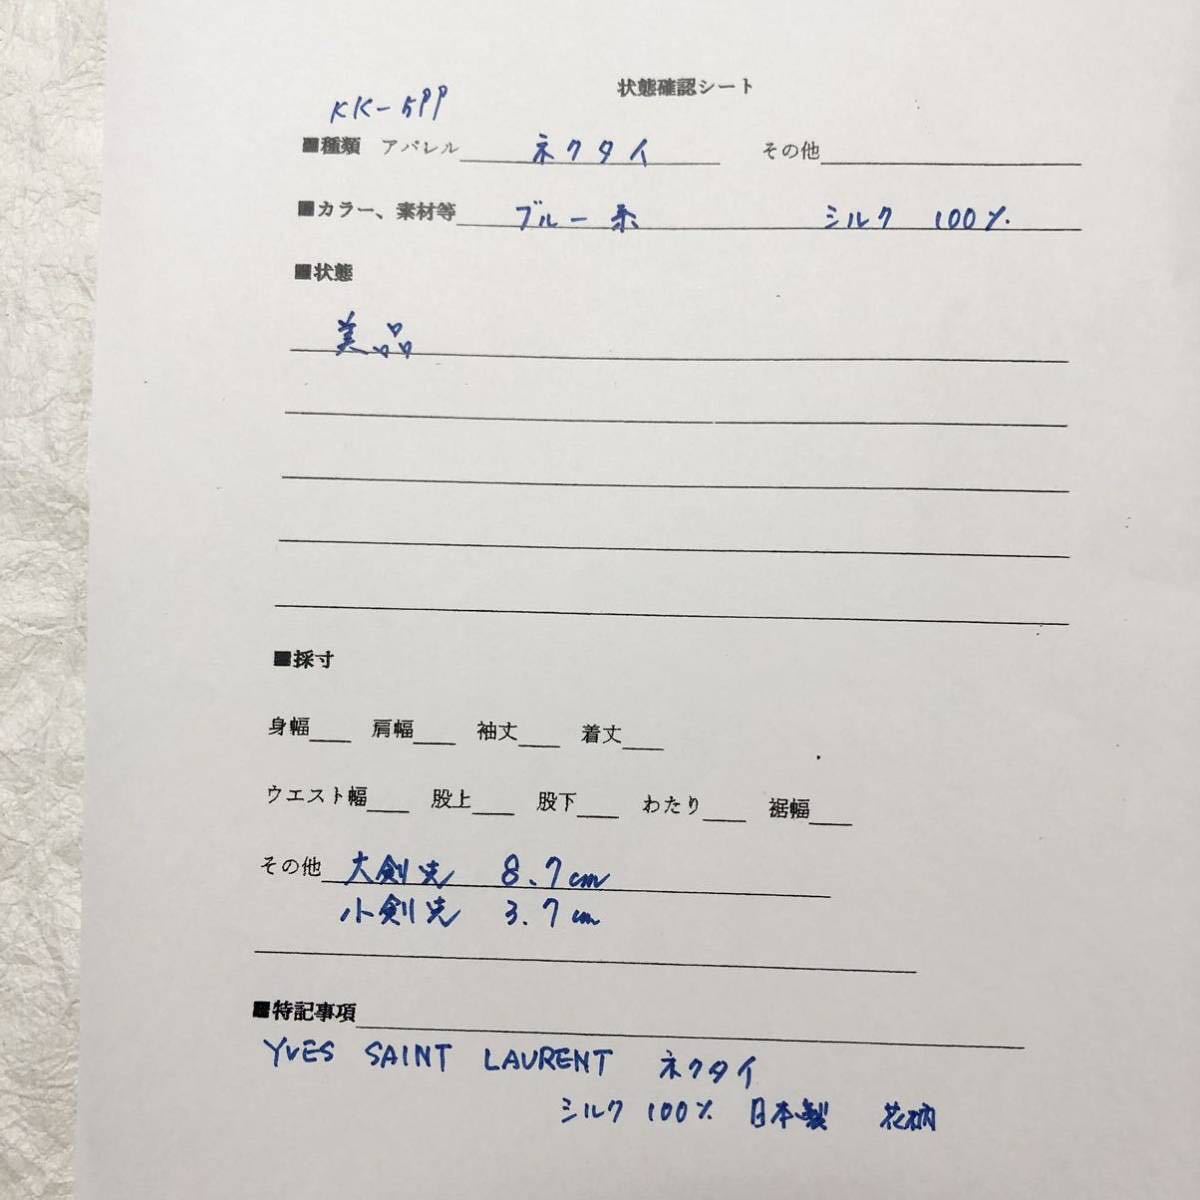 状態確認シート
KK-599
■種類 アパレル ネクタイ その他
■カラー、素材等 ブルー系 シルク 100%
■状態
美品
■採寸
身幅___ 肩幅___ 袖丈___ 着丈___
ウエスト幅___ 股上___ 股下___ わたり___ 裾幅___
その他 大剣先 8.7cm
小剣先 3.7cm
■特記事項
YVES SAINT LAURENT ネクタイ
シルク 100% 日本製 花柄